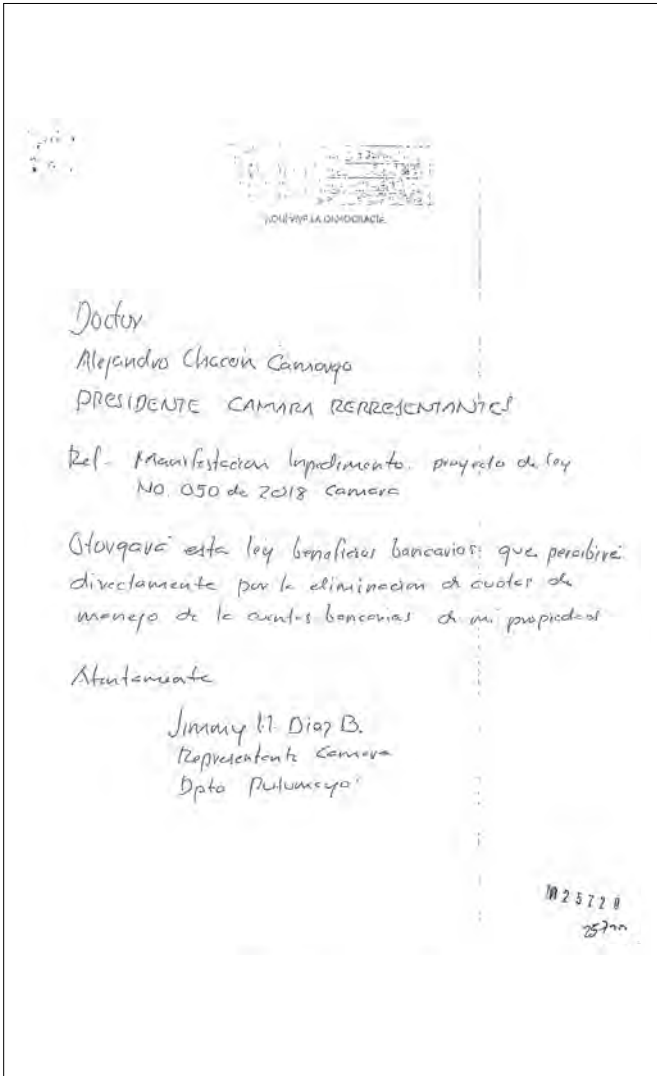 AQUÍ VIVE LA DEMOCRACIA
Doctor
Alejandro Chacón Camargo
PRESIDENTE CAMARA REPRESENTANTES
Ref. Manifestacion Impedimento. proyecto de ley
NO. 050 de 2018 camara
Otorgara esta ley beneficios bancarios que percibiré
directamente por la eliminacion de cuotas de
manejo de la cuentas bancarias de mi propiedad
Atentamente
Jimmy H. Diaz B.
Representante Camara
Dpto Putumayo